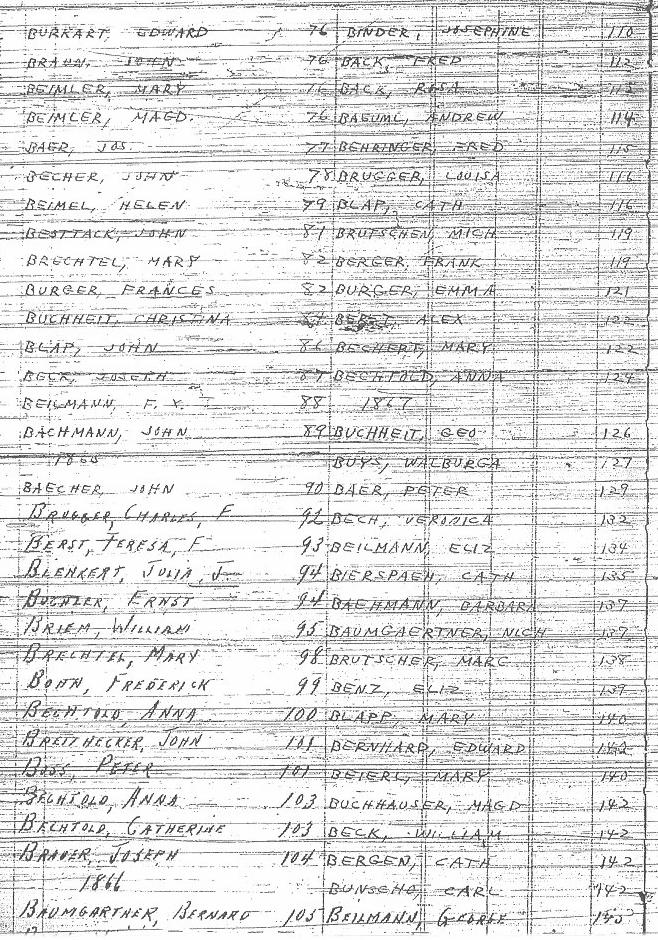 BURKART, EDWARD 76
BRAUN, JOHN 76
BEIMLER, MARY 76
BEIMLER, MAGD. 76
BAER, JOS. 77
BECHER, JOHN 78
BEIMEL, HELEN 79
BESTTACK, JOHN 81
BRECHTEL, MARY 82
BURGER, FRANCES 82
BUCHHEIT, CHRISTINA 84
BLAP, JOHN 86
BECK, JOSEPH 87
BEILMANN, F. X. 88
BACHMANN, JOHN 89
1865
BAECHER, JOHN 90
BRUGGER, CHARLES, F 92
BERST, TERESA, F 93
BLEHKERT, JULIA, J. 94
BUCHLER, ERNST 94
BRIEM, WILLIAM 95
BRECHTEL, MARY 98
BOHN, FREDERICK 99
BECHTOLD, ANNA 100
BRETTHECKER, JOHN 101
BOSS, PETER 101
BECHTOLD, ANNA 103
BECHTOLD, CATHERINE 103
BRAUER, JOSEPH 104
1866
BAUMGARTNER, BERNARD 105
BINDER, JOSEPHINE 110
BACK, FRED 112
BACK, ROSA 113
BAEUML, ANDREW 114
BEHRINGER, FRED 115
BRUGGER, LOUISA 116
BLAP, CATH 116
BRUTSCHEN, MICH 119
BERGER, FRANK 119
BURGER, EMMA 121
ALEX 122
BECHERT, MARY 122
BECHTOLD, ANNA 124
1867
BUCHHEIT, GEO 126
BUYS, WALBURGA 127
BAER, PETER 129
BECH, VERONICA 132
BEILMANN, ELIZ 134
BIERSPAEH, CATH 135
BAEHMANN, BARBARA 137
BAUMGAERTNER, NICH 137
BRUTSCHER, MARC 138
BENZ, ELIZ 139
BLAPP, MARY 140
BERNHARD, EDWARD 142
BEIERL, MARY 140
BUCHHAUSER, MAGD 142
BECK, WILLIAM 142
BERGEN, CATH 142
BUNSCHO, CARL 142
BEILMANN, GEORGE